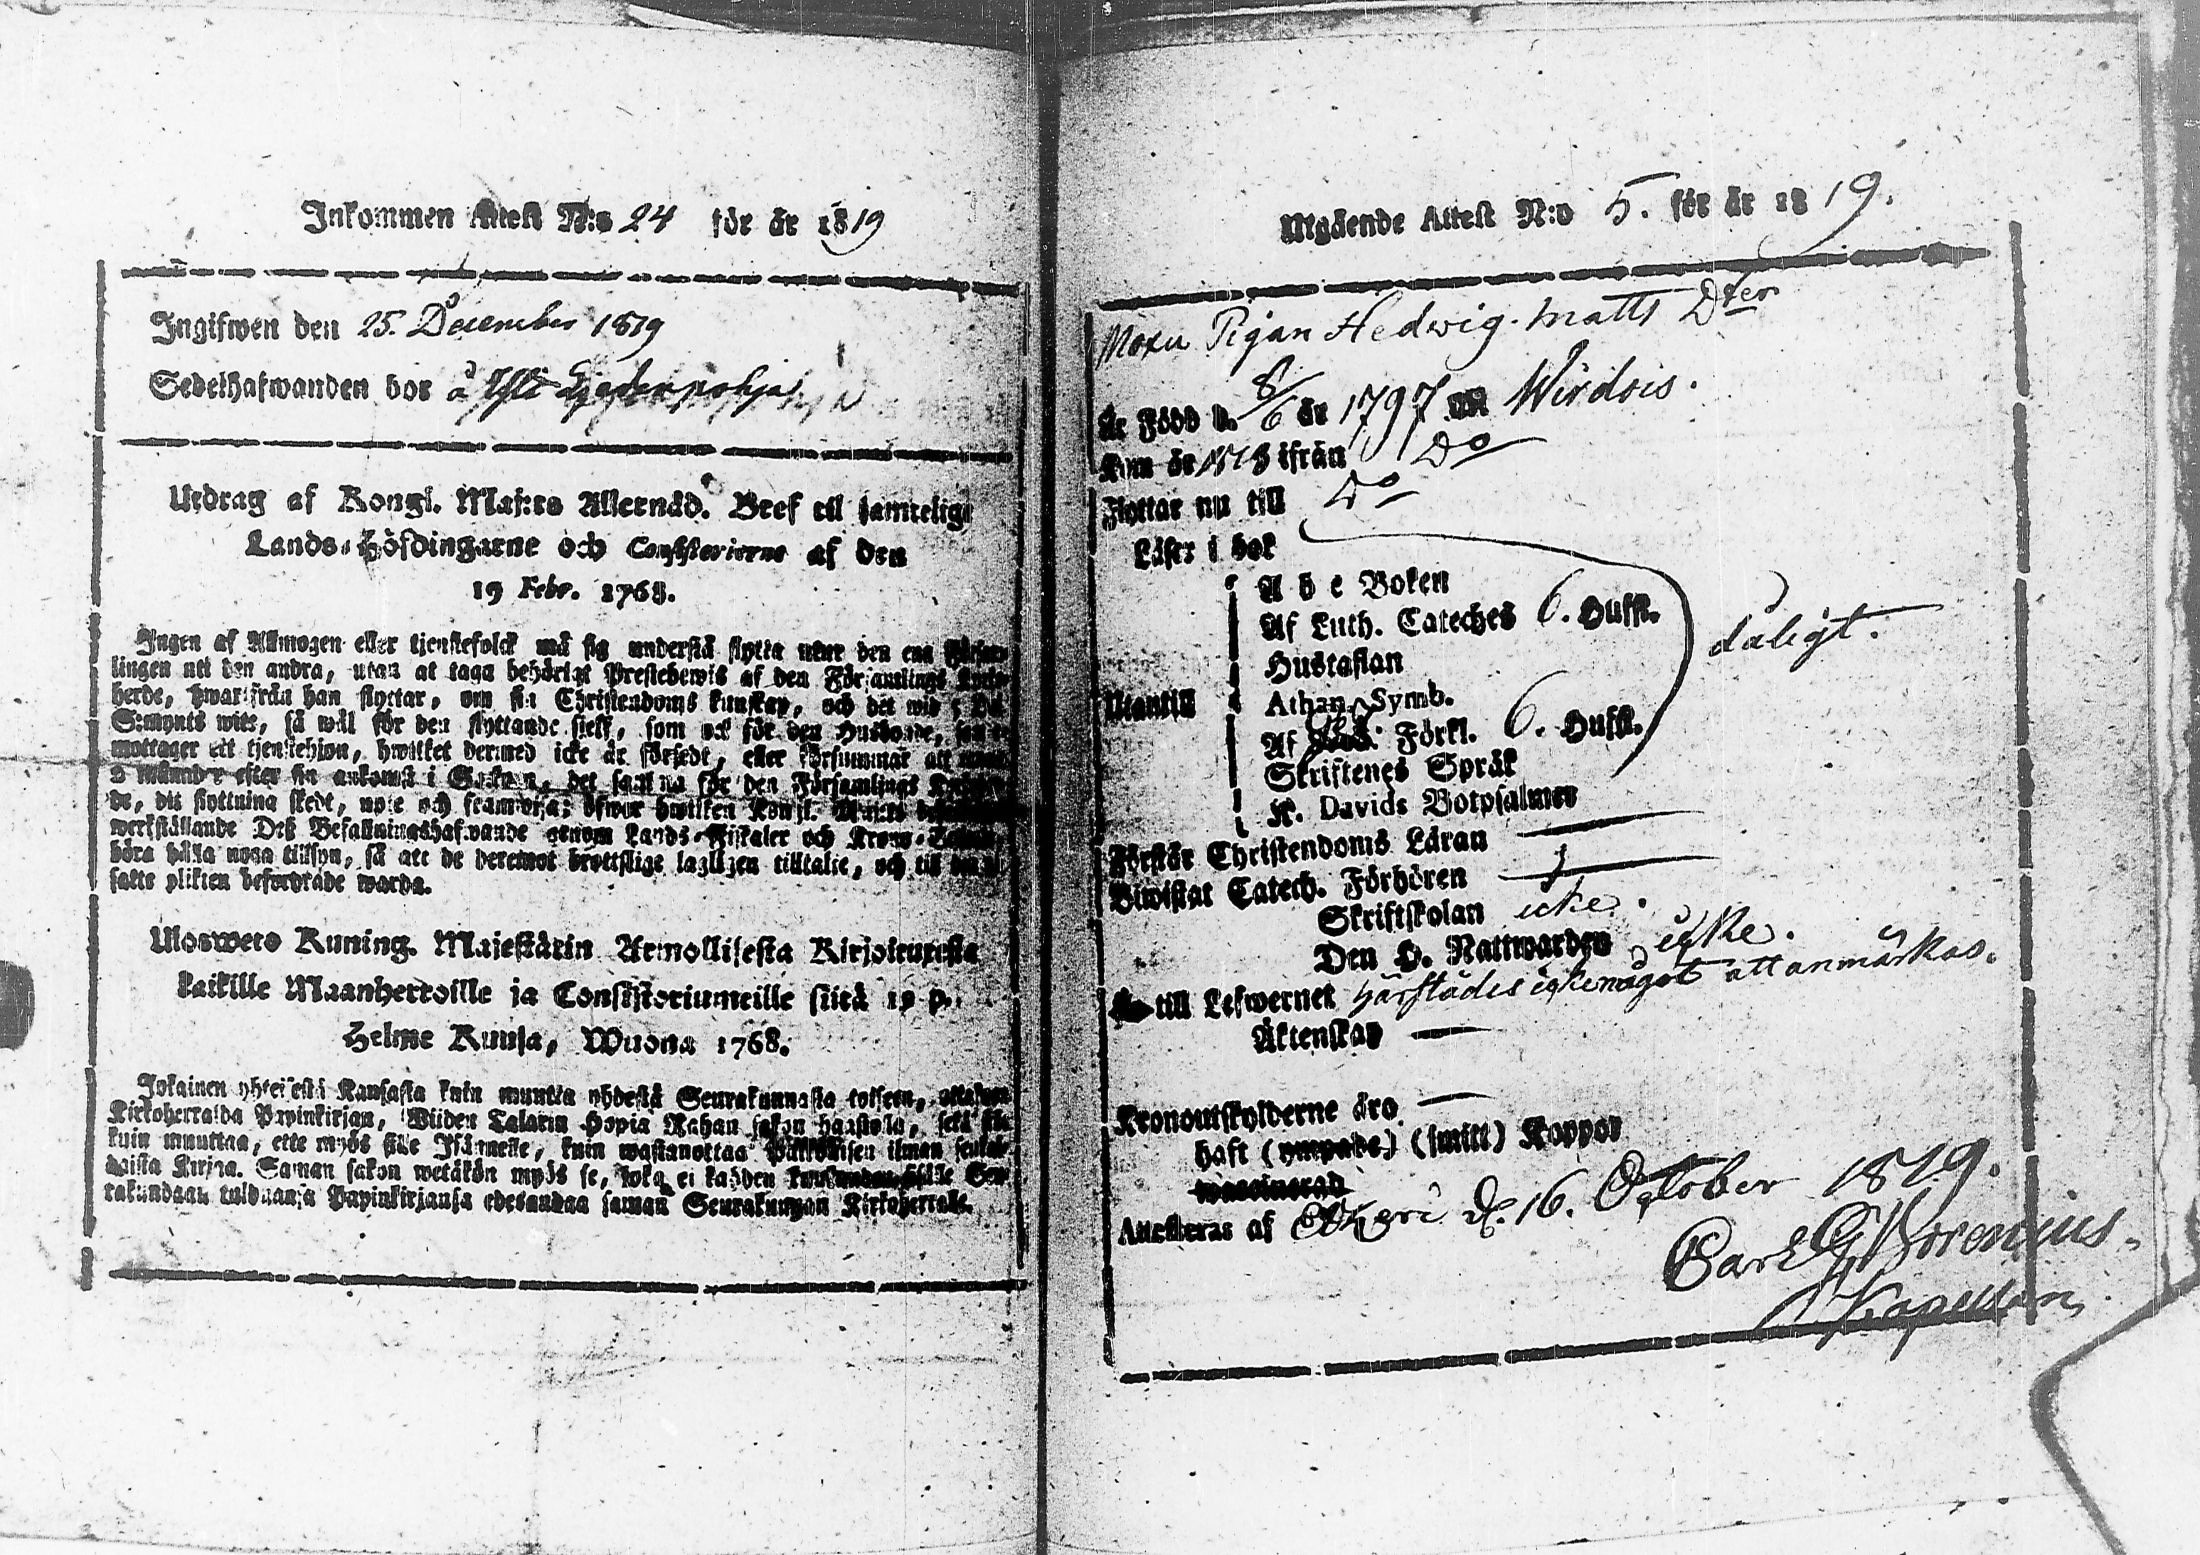 Inkommen Attest N:o 24 för år 1819
Ingifwen den 25. December 1819
Sedelhafwanden bor å
Utdrag af Kongl. Maj:ts Allernåd. Bref till samtelige
Lands-Höfdingarne och Consistorierne af den
19 Febr. 1768.
Ingen af Allmogen eller tjenstefolck må sig understå flytta utur den ena Försam-
lingen till den andra, utan at taga behörigt Prestebewis af den Församlings Kyrko-
herde, hwarifrån han flyttar, om sin Christendoms kunskap, och det wid 5 Dal.
S:mynts wite, så wäl för den flyttande sielf, som ock för den Husbonde, som
mottager ett tjenstehjon, hwilket dermed icke är försedt, eller försummar att innom
månader efter sin ankomst i Socknen, det samma för den Församlings Kyrkoher-
de, dit flyttning skedt, upte och framwisa; öfwer hwilken Kongl. Maj:ts
werkställande Dess Befallningshafwande genom Lands-Fiskaler och Krono-Betjente
böra hålla noga tillsyn, så att de deremot brottslige lagligen tilltalte, och till
satte plikten befordrade warda.
Ulosweto Kuning. Majestätin Armollisesta Kirjoituxesta
kaikille Maanherroille ja Consistoriumeille siitä 19 p.
Helme Kuusa, Wuona 1768.
Jokainen yhteisestä Kansasta kuin muutta yhdestä Seurakunnasta toiseen, ottakoon
Kirkoherralda Papinkirjan, Wiiden Talarin Hopia Rahan sakon haastolla, sekä
kuin muuttaa, ette myös sille Isännelle, kuin wastanottaa Palkollisen ilman
daista Kirjaa. Saman sakon wetäkön myös se, joka ei kahden sisälle Seu-
rakundaan tulduansa Papinkirjansa edesandaa saman Seurakunnan Kirkoherralle.
Utgående Attest N:o 5. för år 1819.
Pigan Hedwig Matts Dter
Är Född d. 8/6 år 1797 i Wirdois.
Kom år 1818 ifrån Do
Flyttar nu till Do
Läser i bok
A b c Boken
Af Luth. Cateches 6. Hufst.
Hustaflan
dåligt.
Utantill
Athan. Symb.
Af Förkl. 6. Hufst.
Skriftenes Språk
K. Davids Botpsalmer
Förstår Christendoms Läran
Biwistat Catech. Förhören
Skriftskolan icke.
Den H. Nattwarden icke.
till Lefwernet härstädes icke något att anmärkas.
Äktenskap
Kronoutskylderne äro
haft (ympade) (smitt) Koppor
waccinerad
Attesteras af Etzeri d. 16. October 1819.
Carl G Borenius.
Kapellan